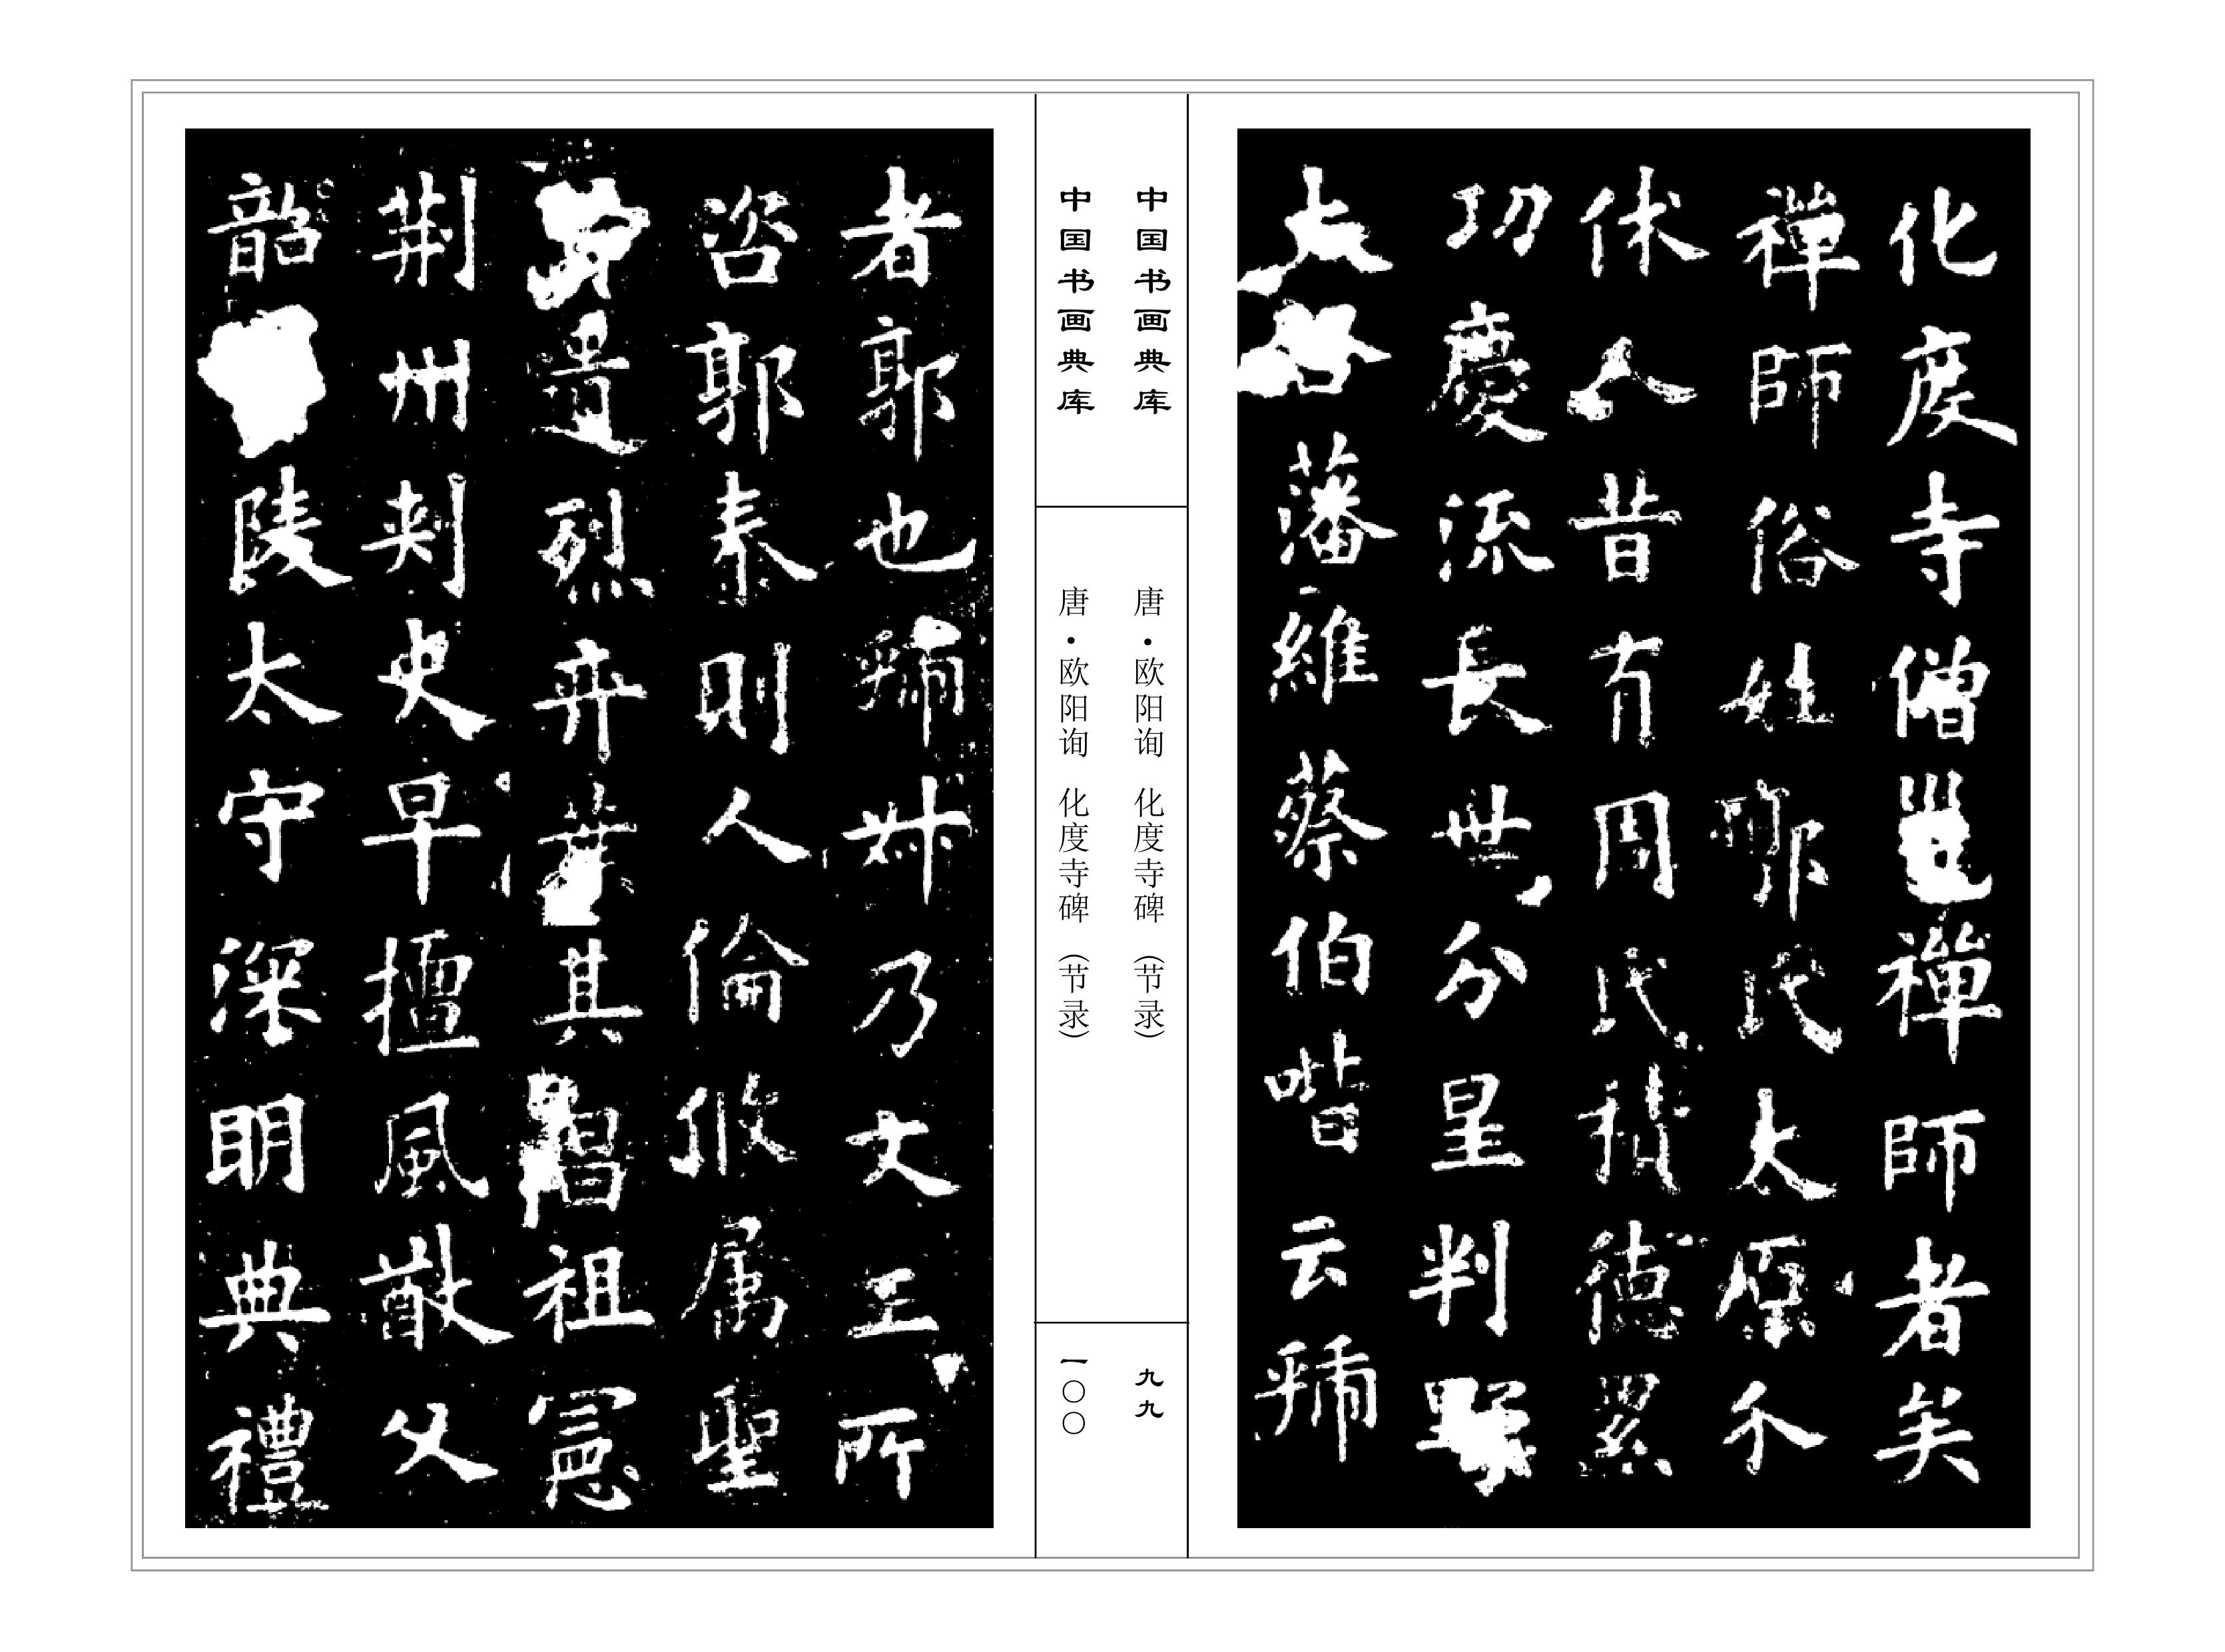 化度寺僧邕禪師者矣
禪師俗姓郭氏太原介
休人昔有周氏積德累
功慶流長世分星判野
大啓藩維蔡伯喈云虢
中国书画典库
唐·欧阳询 化度寺碑（节录）
九九
中国书画典库
唐·欧阳询 化度寺碑（节录）
一〇〇
者郭也虢叔乃文王所
咨郭泰則人倫攸属聖
遺烈弈葉其昌祖憲
荊州刾史早擅風猷父
韶陵太守深明典禮